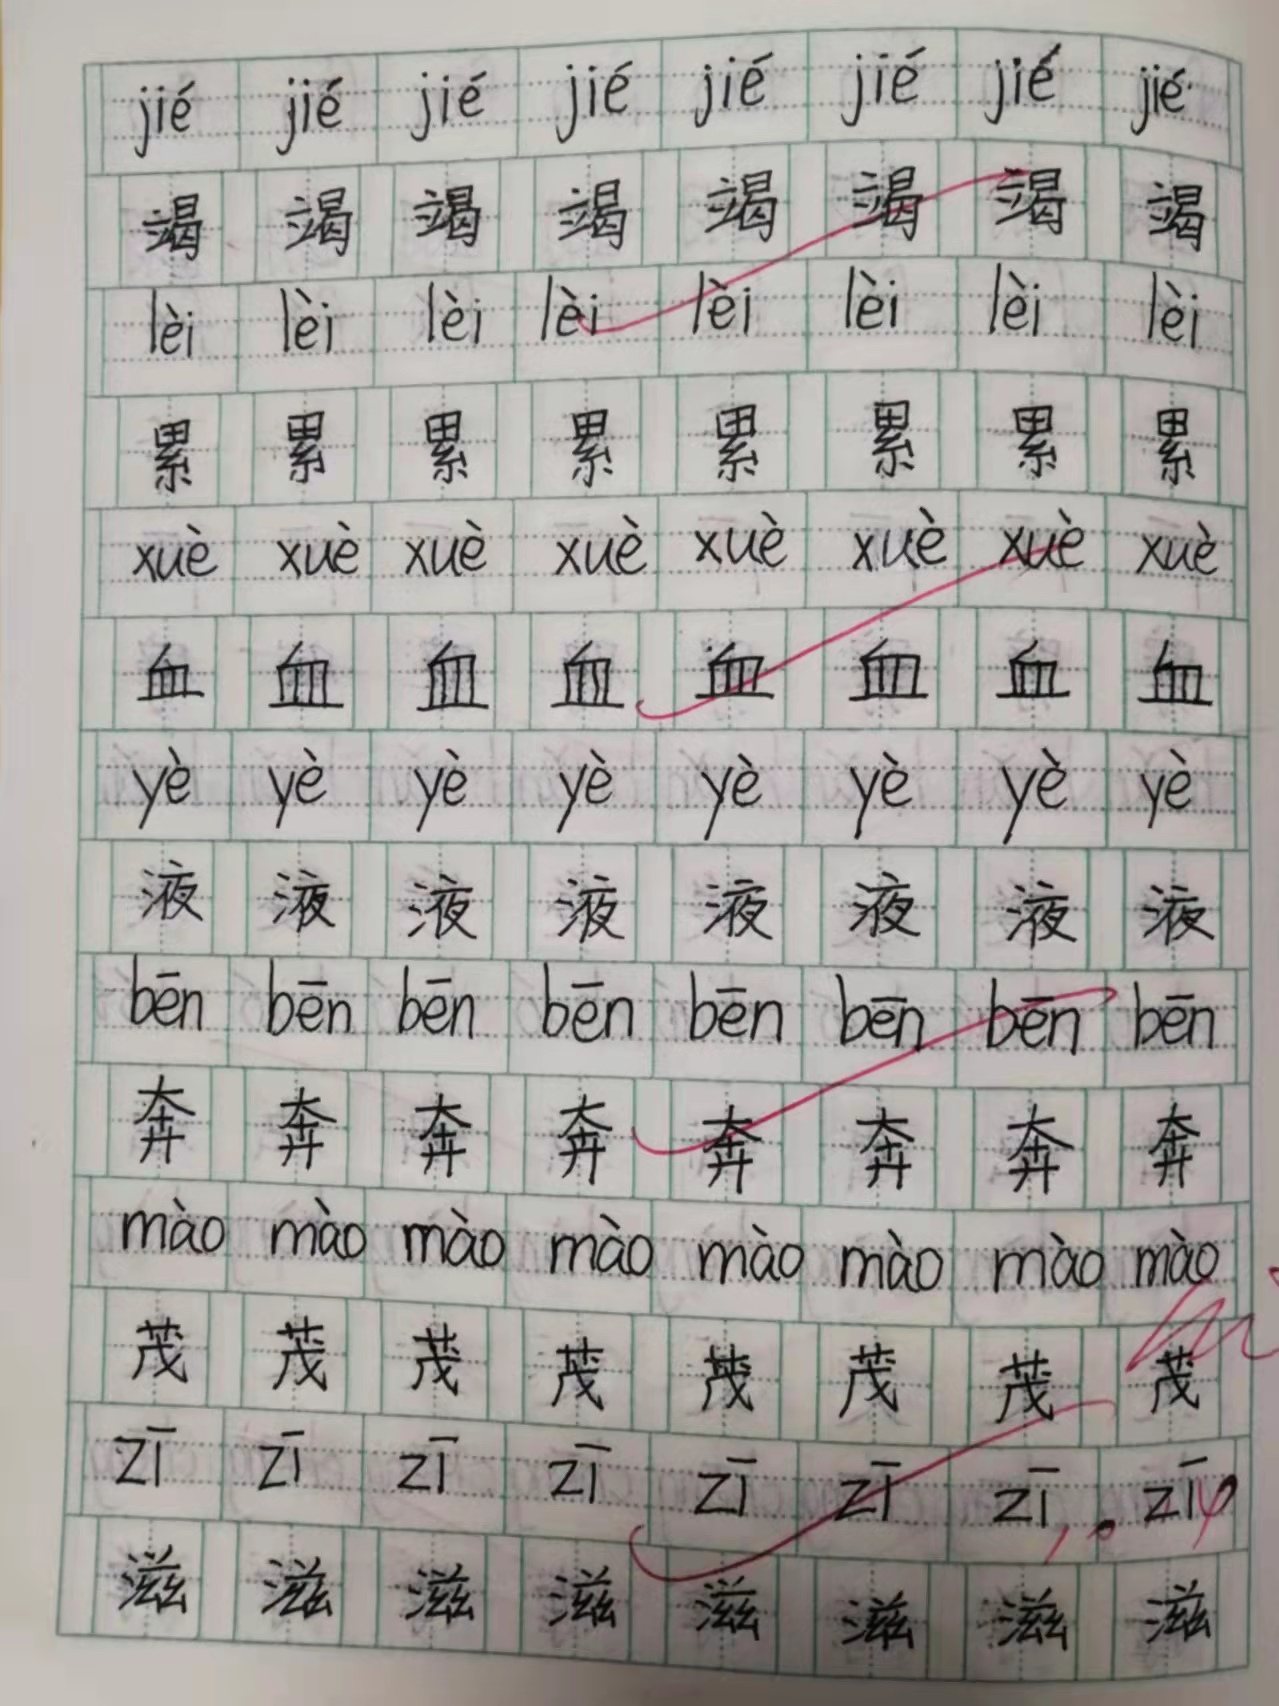 jié jié jié jié jié jié jié jié
竭 竭 竭 竭 竭 竭 竭 竭
lèi lèi lèi lèi lèi lèi lèi lèi
累 累 累 累 累 累 累 累
xuè xuè xuè xuè xuè xuè xuè xuè
血 血 血 血 血 血 血 血
yè yè yè yè yè yè yè yè
液 液 液 液 液 液 液 液
bēn bēn bēn bēn bēn bēn bēn bēn
奔 奔 奔 奔 奔 奔 奔 奔
mào mào mào mào mào mào mào mào
茂 茂 茂 茂 茂 茂 茂 茂
zī zī zī zī zī zī zī zī
滋 滋 滋 滋 滋 滋 滋 滋